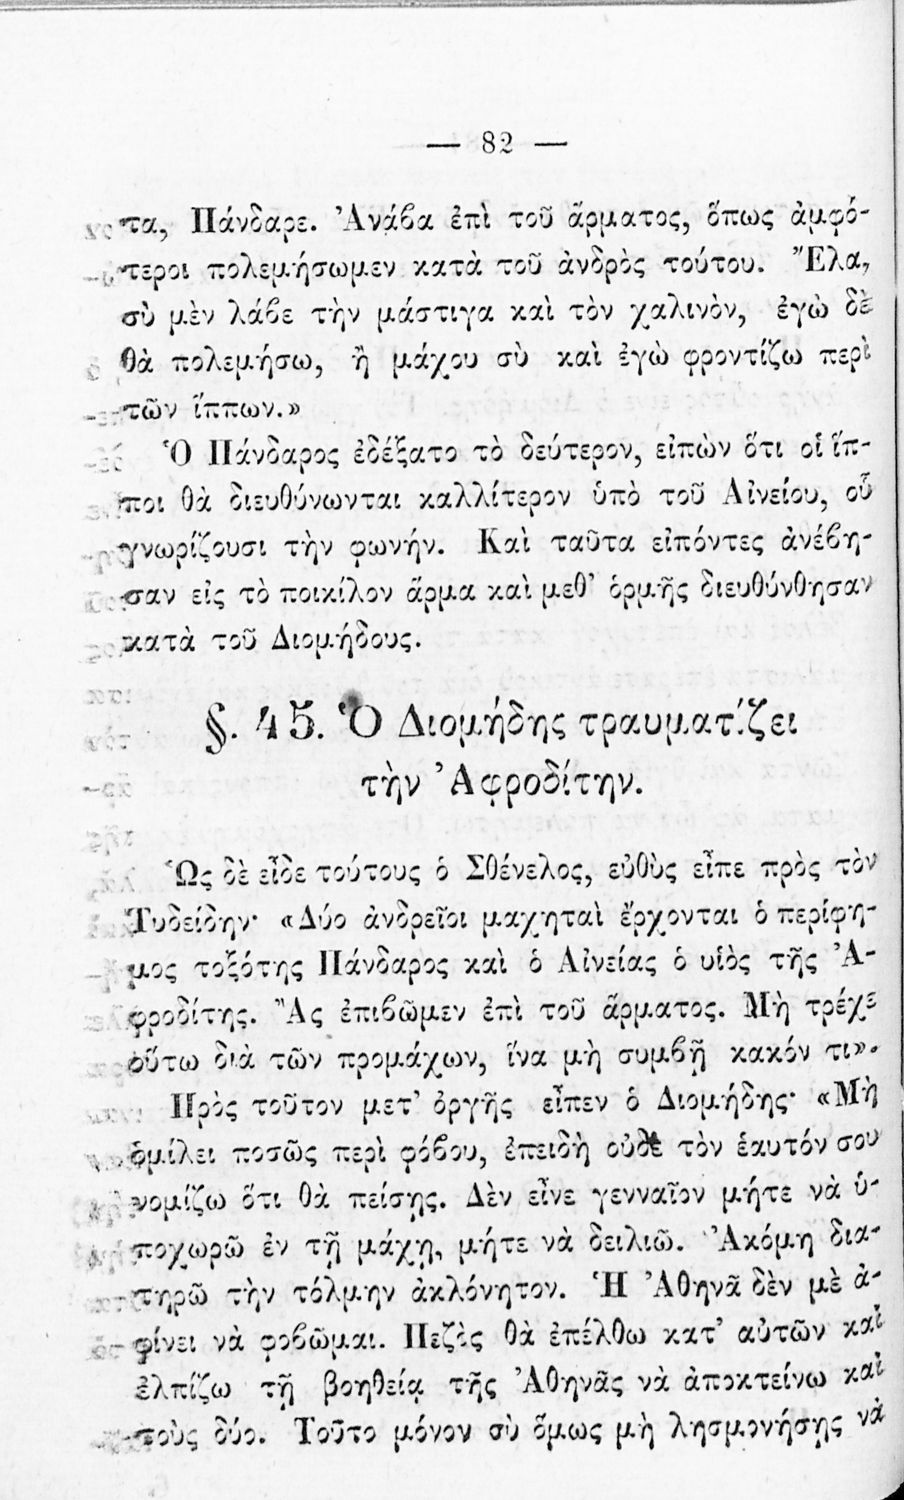 — 82 —
τα, Πάνδαρε. Ἀνάβα ἐπὶ τοῦ ἅρματος, ὅπως ἀμφό-
τεροι πολεμήσωμεν κατὰ τοῦ ἀνδρὸς τούτου. Ἔλα,
σὺ μὲν λάβε τὴν μάστιγα καὶ τὸν χαλινὸν, ἐγὼ δὲ
θὰ πολεμήσω, ἢ μάχου σὺ καὶ ἐγὼ φροντίζω περὶ
τῶν ἵππων.»
Ὁ Πάνδαρος ἐδέξατο τὸ δεύτερον, εἰπὼν ὅτι οἱ ἵπ-
ποι θὰ διευθύνωνται καλλίτερον ὑπὸ τοῦ Αἰνείου, οὗ
γνωρίζουσι τὴν φωνήν. Καὶ ταῦτα εἰπόντες ἀνέβη-
σαν εἰς τὸ ποικίλον ἅρμα καὶ μεθ' ὁρμῆς διευθύνθησαν
κατὰ τοῦ Διομήδους.
§. 45. Ὁ Διομήδης τραυματίζει
τὴν Ἀφροδίτην.
Ὡς δὲ εἶδε τούτους ὁ Σθένελος, εὐθὺς εἶπε πρὸς τὸν
Τυδείδην· «Δύο ἀνδρεῖοι μαχηταὶ ἔρχονται ὁ περίφη-
μος τοξότης Πάνδαρος καὶ ὁ Αἰνείας ὁ υἱὸς τῆς Ἀ-
φροδίτης. Ἂς ἐπιβῶμεν ἐπὶ τοῦ ἅρματος. Μὴ τρέχε
οὕτω διὰ τῶν προμάχων, ἵνα μὴ συμβῇ κακόν τι».
Πρὸς τοῦτον μετ' ὀργῆς εἶπεν ὁ Διομήδης· «Μὴ
ὁμίλει ποσῶς περὶ φόβου, ἐπειδὴ οὐδὲ τὸν ἑαυτόν σου
νομίζω ὅτι θὰ πείσῃς. Δὲν εἶνε γενναῖον μήτε νὰ ὑ-
ποχωρῶ ἐν τῇ μάχῃ, μήτε νὰ δειλιῶ. Ἀκόμη δια-
τηρῶ τὴν τόλμην ἀκλόνητον. Ἡ Ἀθηνᾶ δὲν μὲ ἀ-
φίνει νὰ φοβῶμαι. Πεζὸς θὰ ἐπέλθω κατ' αὐτῶν καὶ
ἐλπίζω τῇ βοηθείᾳ τῆς Ἀθηνᾶς νὰ ἀποκτείνω καὶ
τοὺς δύο. Τοῦτο μόνον σὺ ὅμως μὴ λησμονήσῃς νὰ